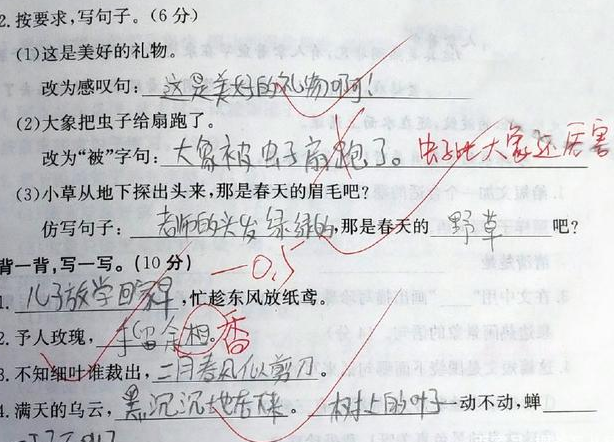 2.按要求,写句子。(6分)
(1)这是美好的礼物。
改为感叹句:这是美好的礼物啊!
(2)大象把虫子给扇跑了。
改为“被”字句:大象被虫子扇跑了。虫子比大象还厉害
(3)小草从地下探出头来,那是春天的眉毛吧?
仿写句子:老师的头发绿绿的,那是春天的野草吧?
背一背,写一写。(10分) -0.5
1.儿子放学回家早,忙趁东风放纸鸢。
2.予人玫瑰,手留余相。香
3.不知细叶谁裁出,二月春风似剪刀。
4.满天的乌云,黑沉沉地后碟。树上的叶子一动不动,蝉